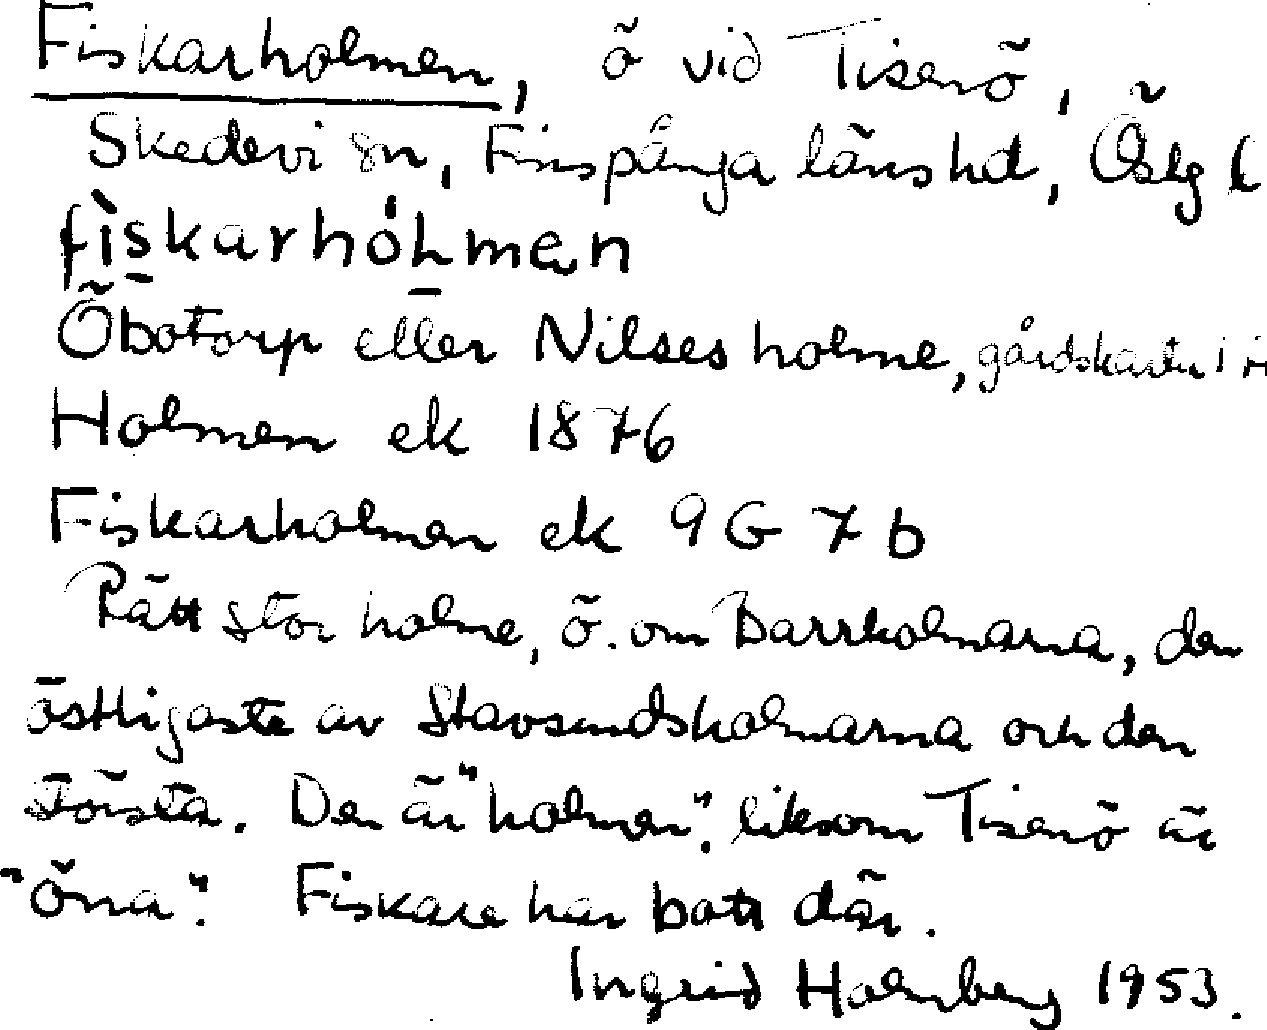 Fiskarholmen, ö vid Tisenö,
Skedevi sn, Finspånga länshd, Östg l
fìskarhólmen
Öbotorp eller Nilses holme, gårdskarta i
Holmen ek 1876
Fiskarholmen ek 9G 7b
Rätt stor holme, ö. om Barrholmarna, den
östligaste av Stavsundsholmarna och den
största. Den är "holmen", liksom Tisenö är
"öna". Fiskare har bott där.
Ingrid Holmberg 1953.